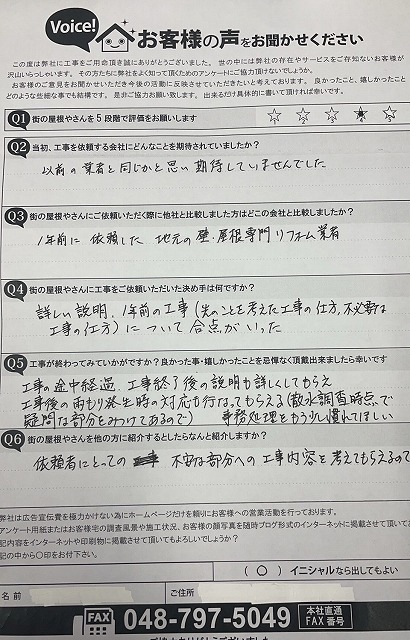 Voice!
お客様の声をお聞かせください
この度は弊社に工事をご用命頂き誠にありがとうございました。世の中には弊社の存在やサービスをご存知ないお客様が
沢山いらっしゃいます。その方たちに弊社をよく知って頂くためのアンケートにご協力頂けないでしょうか。
お客様のご意見をお聞かせいただき今後の活動に反映させていただきたいと考えております。良かったこと、嬉しかったこと
どのような些細な事でも結構です。是非ご協力お願い致します。出来るだけ具体的に書いて頂ければ幸いです。
Q1 街の屋根やさんを5段階で評価をお願いします
Q2 当初、工事を依頼する会社にどんなことを期待されていましたか?
以前の業者と同じかと思い期待していませんでした
Q3 街の屋根やさんにご依頼いただく際に他社と比較しました方はどこの会社と比較しましたか?
1年前に依頼した地元の壁・屋根専門リフォーム業者
Q4 街の屋根やさんに工事をご依頼いただいた決め手は何ですか?
詳しい説明、1年前の工事(先のことを考えた工事の仕方、不必要な
工事の仕方)について合点がいった
Q5 工事が終わってみていかがですか?良かった事・嬉しかったことを忌憚なく頂戴出来ましたら幸いです
工事の途中経過、工事終了後の説明も詳しくしてもらえ
工事後の雨もり発生時の対応も行なってもらえる(散水調査時点で
疑問な部分をみつけてあるので) 事務処理をもう少し慣れてほしい
Q6 街の屋根やさんを他の方に紹介するとしたらなんと紹介しますか?
依頼者にとっての 不安な部分への工事内容を考えてもらえるので
弊社は広告宣伝費を極力かけない為にホームページだけを頼りにお客様への営業活動を行っております。
アンケート用紙またはお客様宅の調査風景や施工状況、お客様の顔写真を随時ブログ形式のインターネットに掲載させて頂いてお
記内容をインターネットや印刷物に掲載させて頂いてもよろしいでしょうか?
記の中から〇印をお付下さい。
(〇)イニシャルなら出してもよい
名前
ご住所
FAX 048-797-5049 本社直通
FAX番号